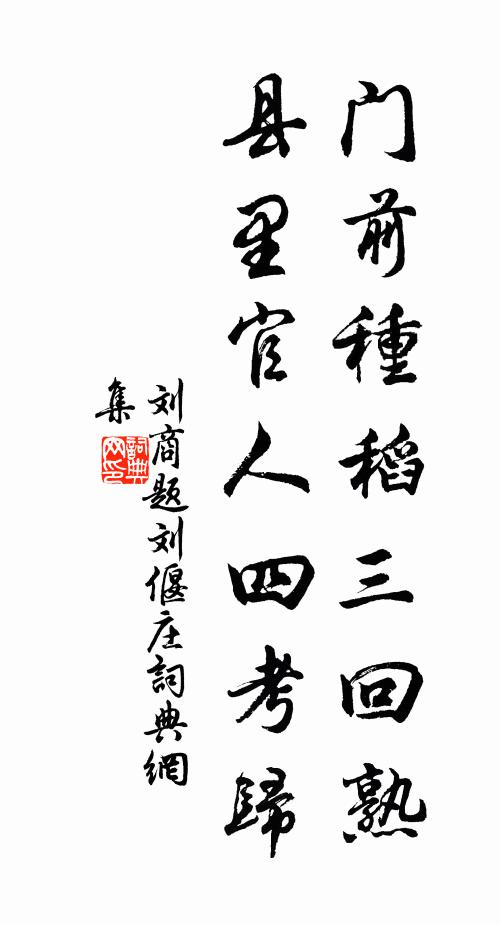 门前種稻三回熟
县里官人四考歸
刘商题刘偃庄詞典網
集
詞典
网印